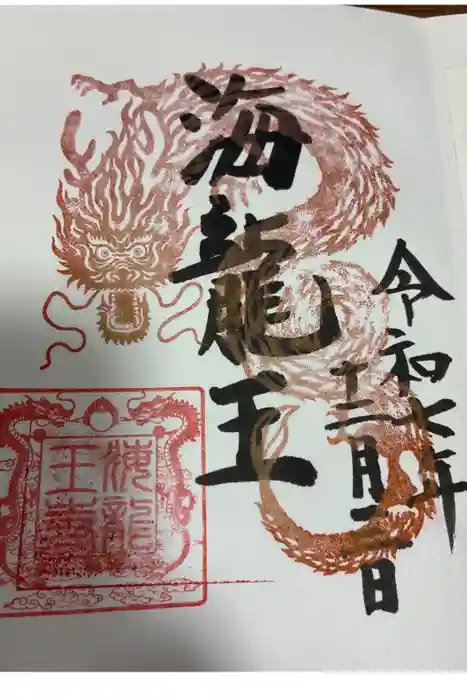 海龍王
令和七年
十二月二日
海龍
王寺